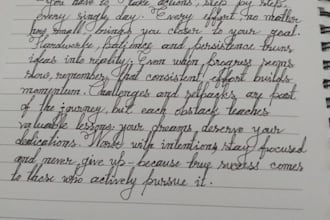 You have to take actions, step by step,
every single day. Every effort no matter
how small, brings you closer to your goal.
Hardwork, patience, and persistence turns
ideas into reality. Even when progress seems
slow, remember that consistent effort builds
momentum. Challenges and setbacks are part
of the journey, but each obstacle teaches
valuable lessons your dreams, deserve your
dedications. Work with intentions, stay focused
and never give up - because true success comes
to those who actively pursue it.